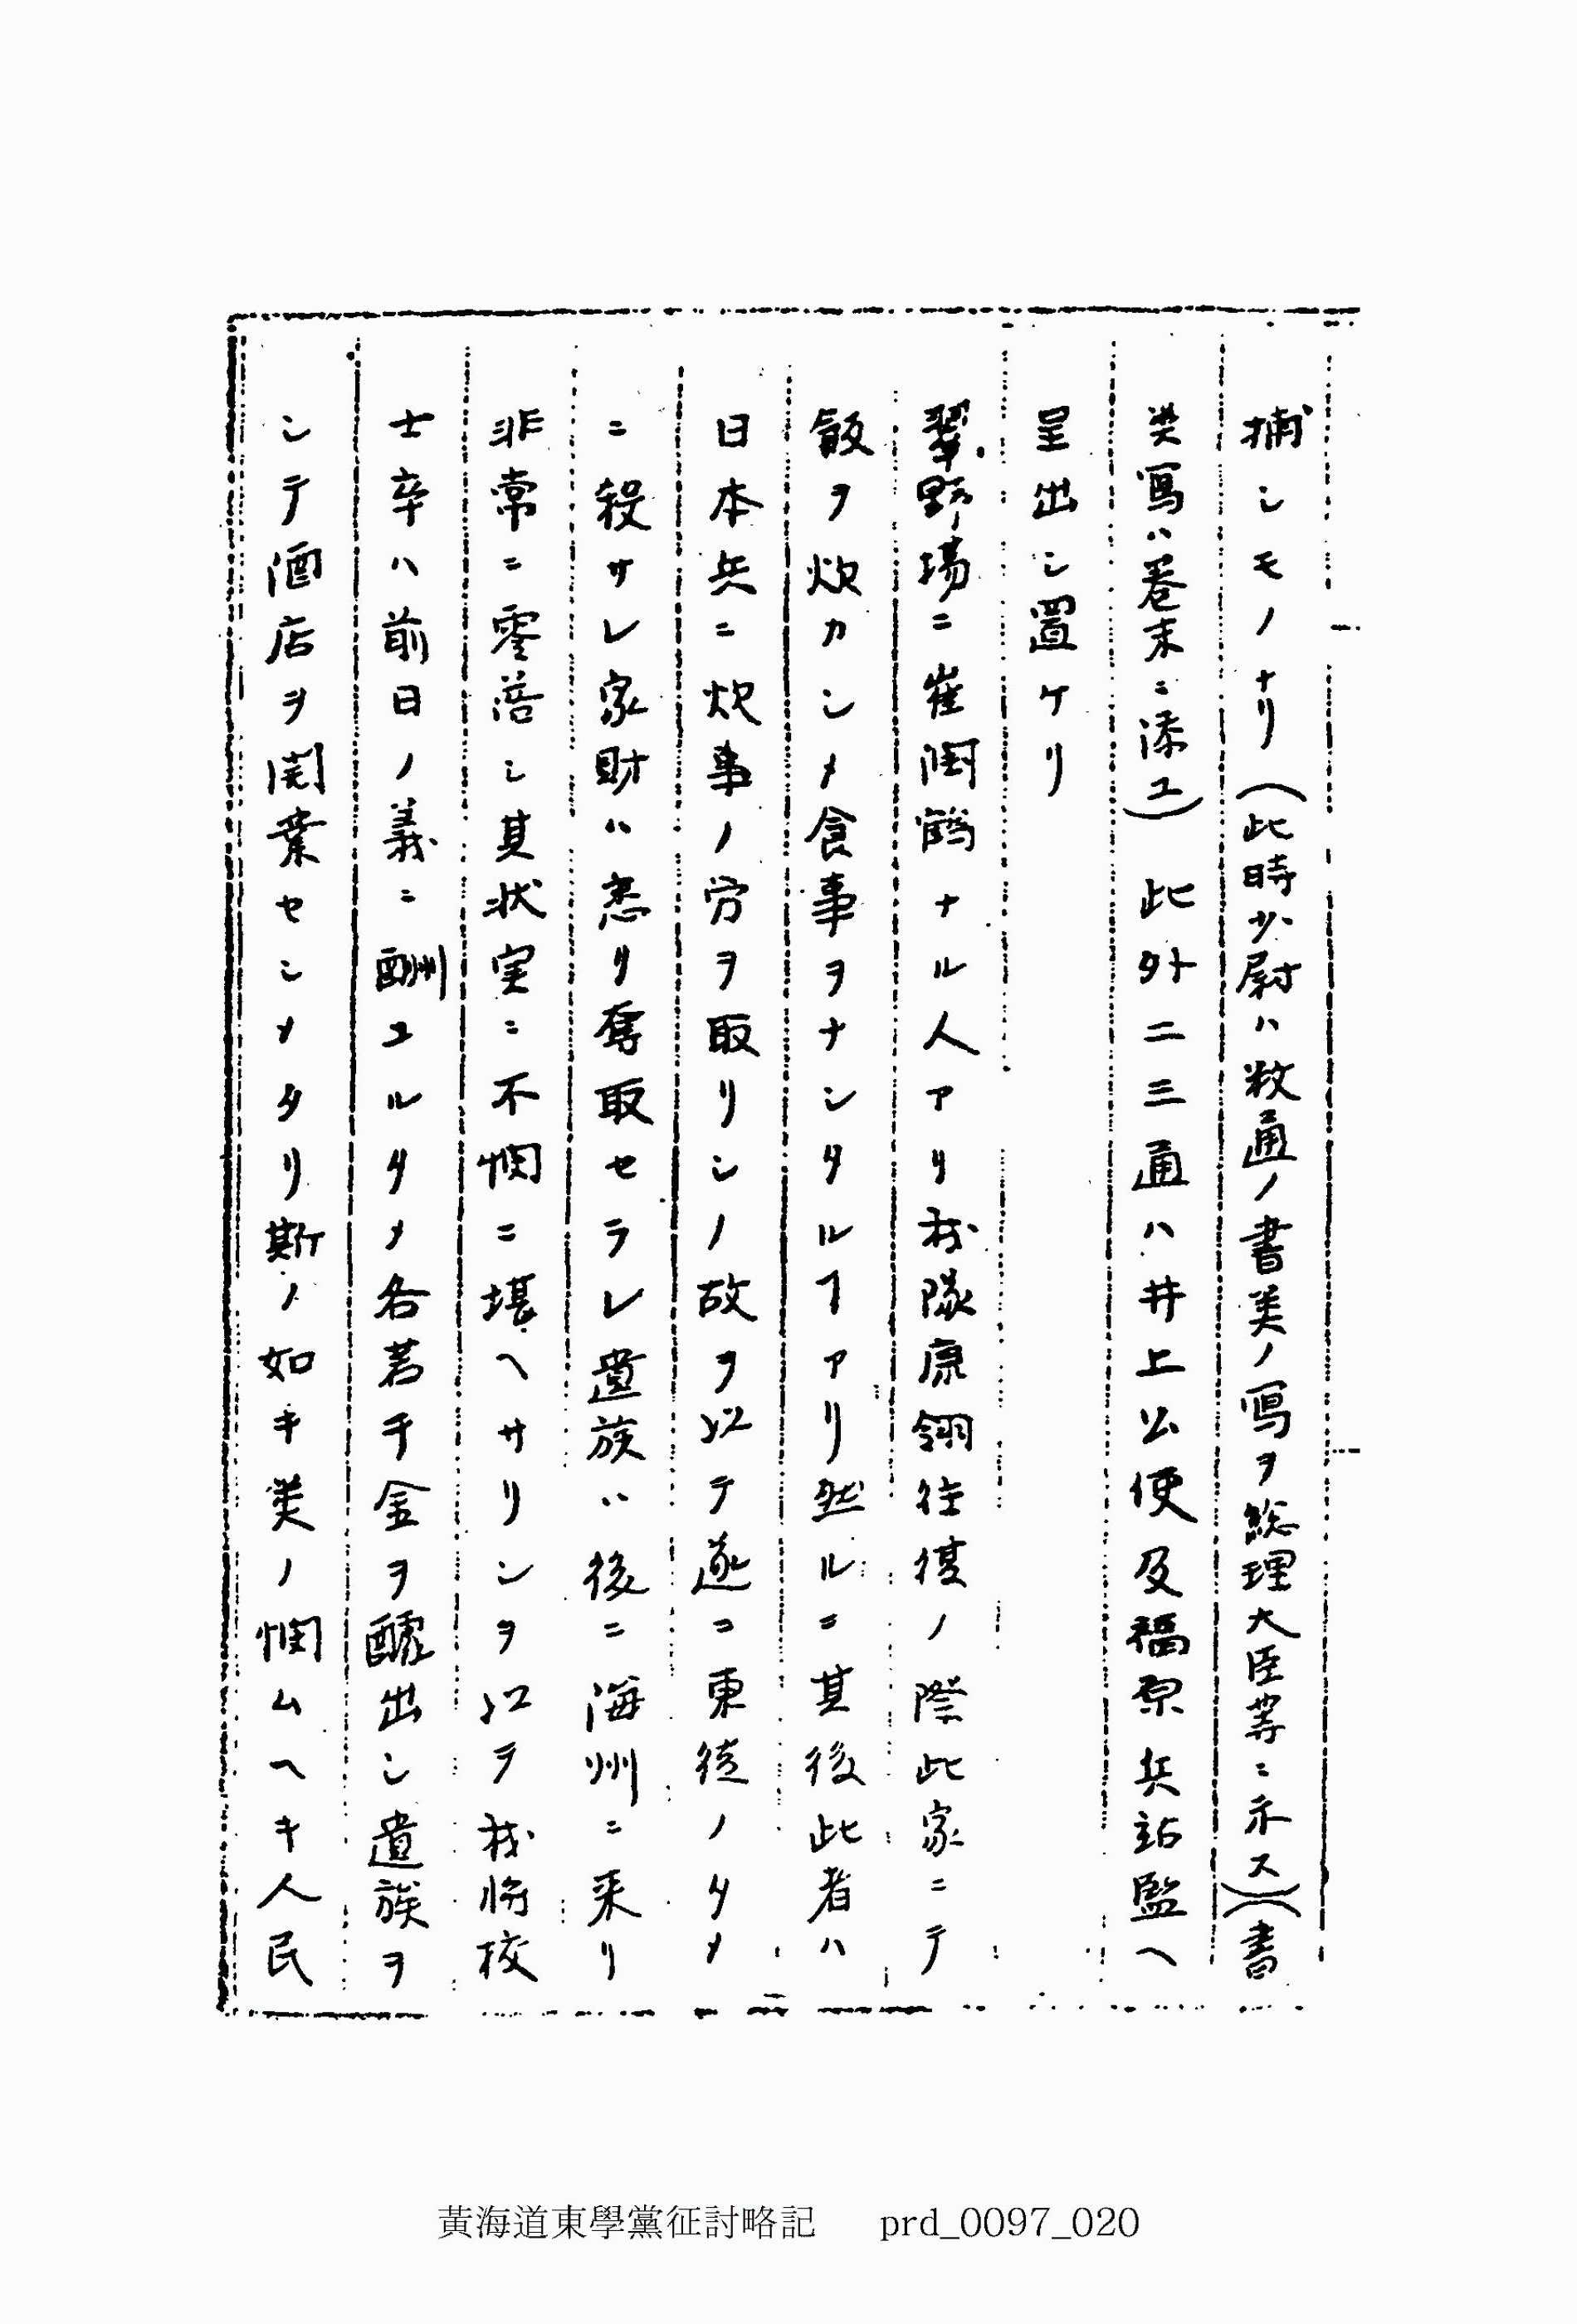 捕シモノナリ(此時少尉ハ数通ノ書类ノ寫ヲ総理大臣等ニ示ス)(書
类寫ハ巻末ニ添ユ)此外二三通ハ井上公使及福原兵站監ヘ
呈出シ置ケリ
翠野場ニ崔潤鶴ナル人アリ我隊康翎往復ノ際此家ニテ
飯ヲ炊カシメ食事ヲナシタルヿアリ然ルニ其後此者ハ
日本兵ニ炊事ノ労ヲ取リシノ故ヲ以テ遂ニ東徒ノタメ
ニ殺サレ家財ハ悉り奪取セラレ遺族ハ後ニ海州ニ来リ
非常ニ零落シ其状実ニ不憫ニ堪ヘサリシヲ以テ我将校
士卒ハ前日ノ義ニ酬ユルタメ各若干金ヲ醵出シ遺族ヲ
シテ酒店ヲ開業セシメタリ斯ノ如キ类ノ憫ムヘキ人民
黃海道東學黨征討略記 prd_0097_020